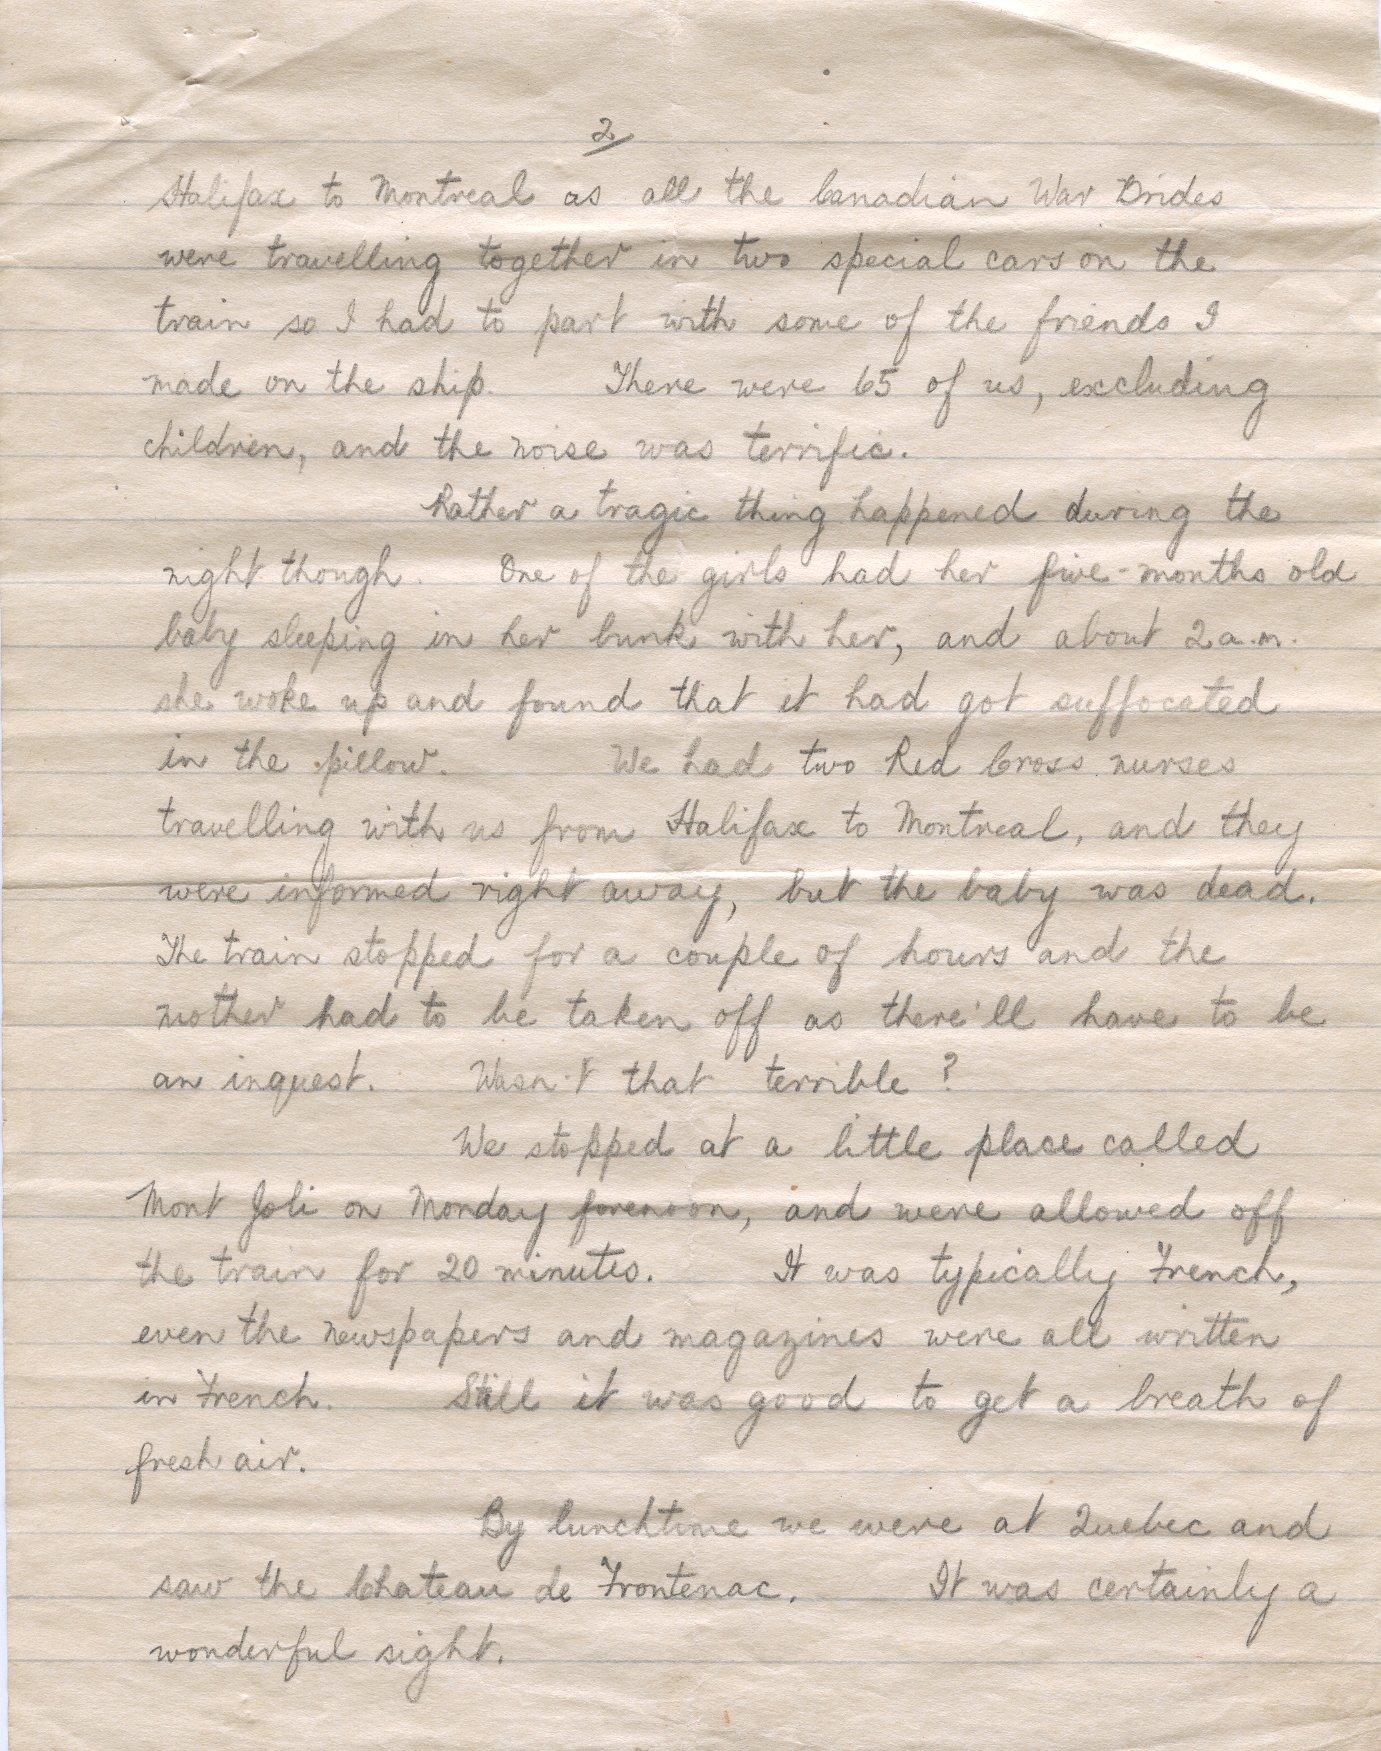 2
Halifax to Montreal as all the Canadian War Brides
were travelling together in two special cars on the
train so I had to part with some of the friends I
made on the ship. There were 65 of us, excluding
children, and the noise was terrific.
Rather a tragic thing happened during the
night though. One of the girls had her five-months old
baby sleeping in her bunk with her, and about 2 a.m.
she woke up and found that it had got suffocated
in the pillow. We had two Red Cross nurses
travelling with us from Halifax to Montreal, and they
were informed right away, but the baby was dead.
The train stopped for a couple of hours and the
mother had to be taken off as there'll have to be
an inquest. Wasn't that terrible?
We stopped at a little place called
Mont Joli on Monday forenoon, and were allowed off
the train for 20 minutes. It was typically French,
even the newspapers and magazines were all written
in French. Still it was good to get a breath of
fresh air.
By lunchtime we were at Quebec and
saw the Chateau de Frontenac. It was certainly a
wonderful sight.